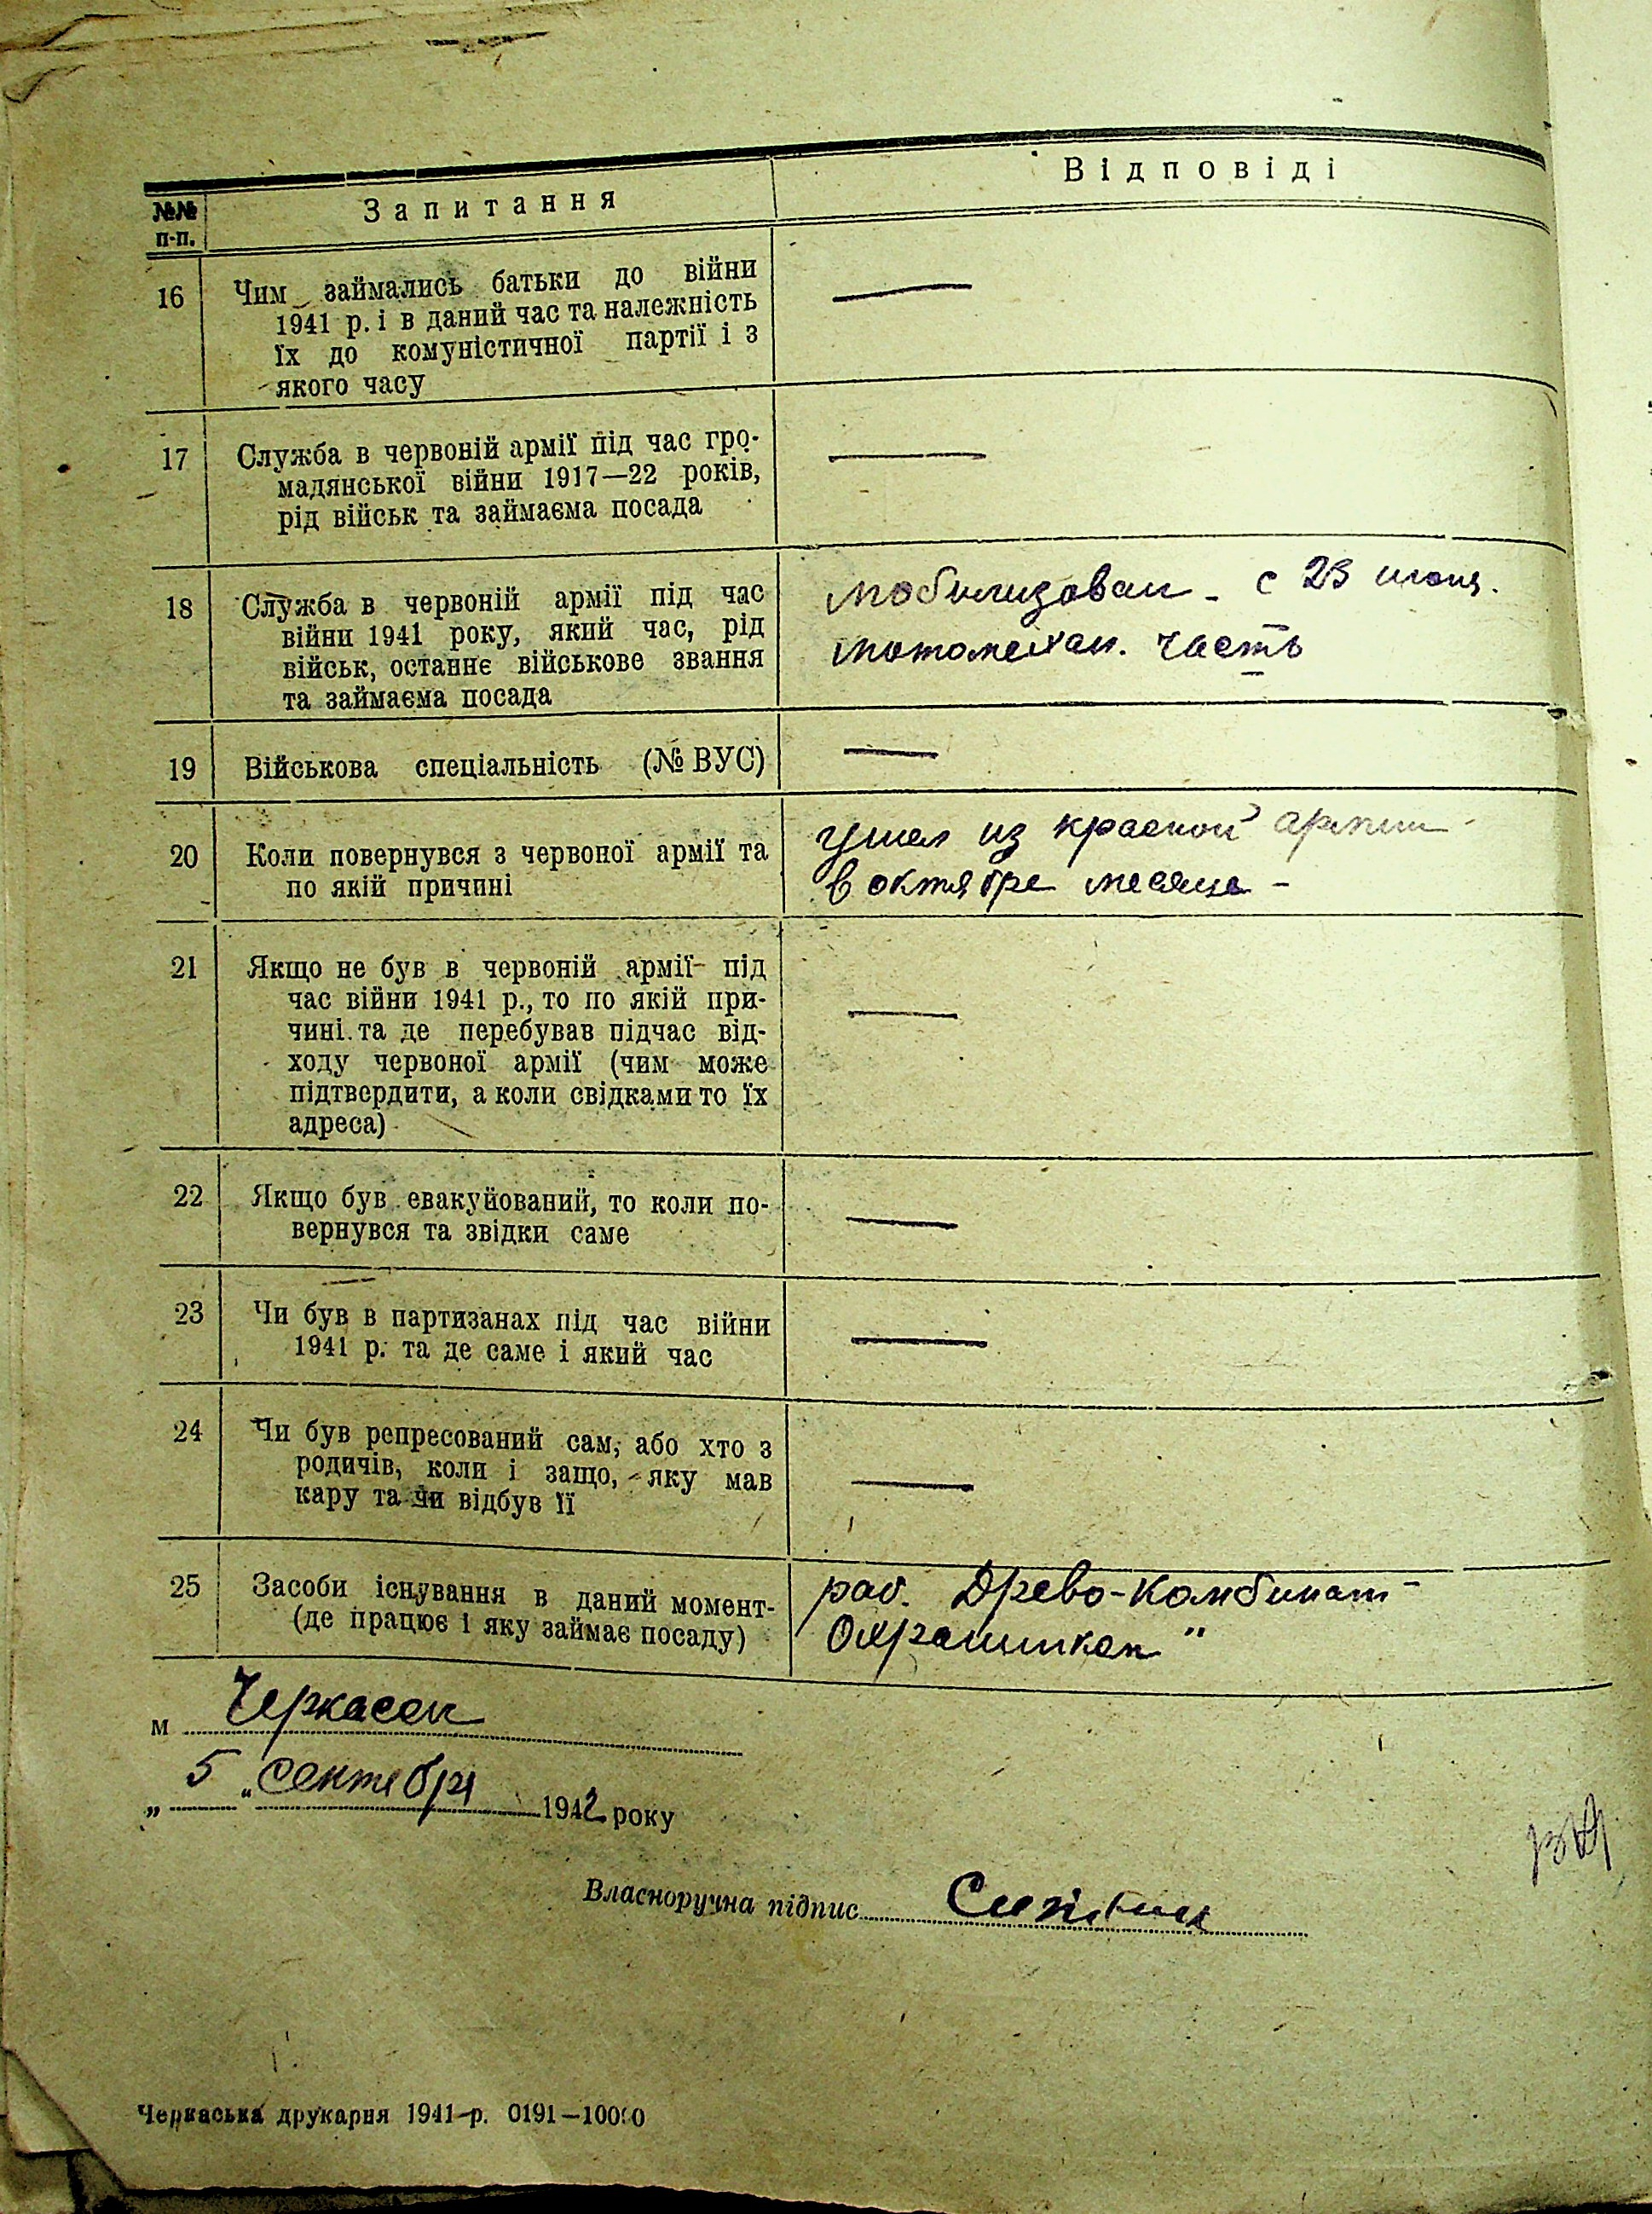 №№ п-п.
Запитання
Відповіді
16
Чим займались батьки до війни
1941 р. і в даний час та належність
їх до комуністичної партії і з
якого часу
—
17
Служба в червоній армії під час гро-
мадянської війни 1917—22 років,
рід військ та займаєма посада
—
18
Служба в червоній армії під час
війни 1941 року, який час, рід
військ, останнє військове звання
та займаєма посада
мобилизован - с 23 июня.
мотомехан. часть
19
Військова спеціальність (№ ВУС)
—
20
Коли повернувся з червоної армії та
по якій причині
ушел из красной армии
в октябре месяце -
21
Якщо не був в червоній армії під
час війни 1941 р., то по якій при-
чині та де перебував підчас від-
ходу червоної армії (чим може
підтвердити, а коли свідками то їх
адреса)
—
22
Якщо був евакуйований, то коли по-
вернувся та звідки саме
—
23
Чи був в партизанах під час війни
1941 р. та де саме і який час
—
24
Чи був репресований сам, або хто з
родичів, коли і защо, яку мав
кару та чи відбув її
—
25
Засоби існування в даний момент-
(де працює і яку займає посаду)
раб. Древо-Комбинат -
Охранником"
м Черкассы
„ 5 " сентября 1942 року
Власноручна підпис
Черкаська друкарня 1941 р. 0191—10000